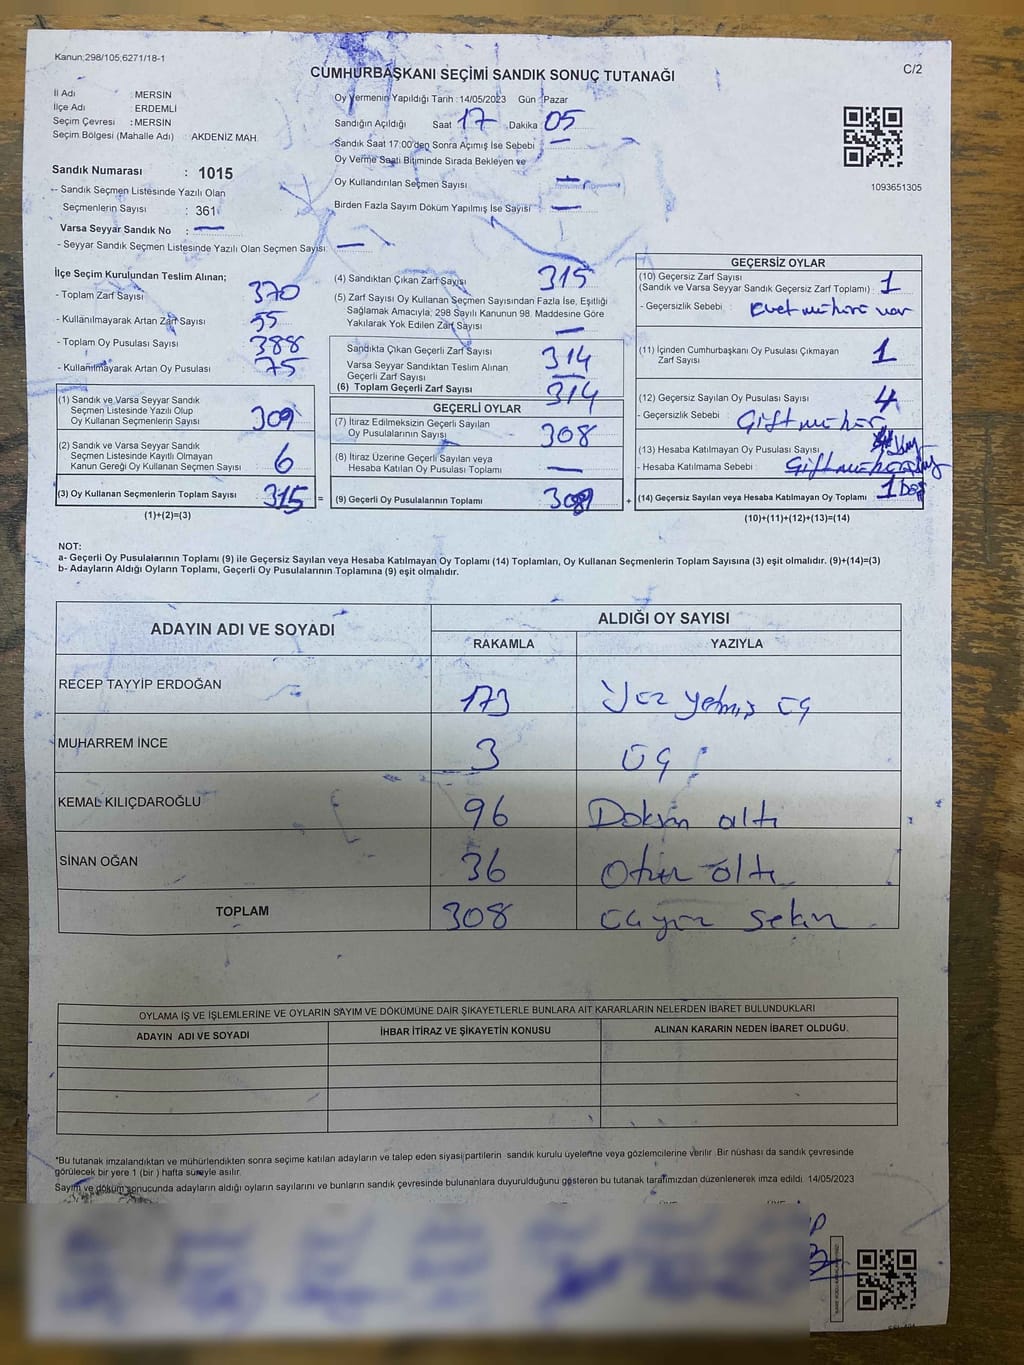 Kanun;298/105,6271/18-1
C/2
CUMHURBAŞKANI SEÇİMİ SANDIK SONUÇ TUTANAĞI
İl Adı : MERSİN
İlçe Adı : ERDEMLİ
Seçim Çevresi : MERSİN
Seçim Bölgesi (Mahalle Adı) : AKDENİZ MAH.
Oy Vermenin Yapıldığı Tarih : 14/05/2023 Gün : Pazar
Sandığın Açıldığı Saat 17 Dakika 05
Sandık Saat 17:00'den Sonra Açımış İse Sebebi —
Oy Verme Saati Bitiminde Sırada Bekleyen ve
Oy Kullandırılan Seçmen Sayısı —
Birden Fazla Sayım Döküm Yapılmış İse Sayısı —
1093651305
Sandık Numarası : 1015
- Sandık Seçmen Listesinde Yazılı Olan
Seçmenlerin Sayısı : 361
Varsa Seyyar Sandık No : —
- Seyyar Sandık Seçmen Listesinde Yazılı Olan Seçmen Sayısı: —
İlçe Seçim Kurulundan Teslim Alınan;
- Toplam Zarf Sayısı 370
- Kullanılmayarak Artan Zarf Sayısı 55
- Toplam Oy Pusulası Sayısı 388
- Kullanılmayarak Artan Oy Pusulası 75
(1) Sandık ve Varsa Seyyar Sandık
Seçmen Listesinde Yazılı Olup
Oy Kullanan Seçmenlerin Sayısı 309
(2) Sandık ve Varsa Seyyar Sandık
Seçmen Listesinde Kayıtlı Olmayan
Kanun Gereği Oy Kullanan Seçmen Sayısı 6
(3) Oy Kullanan Seçmenlerin Toplam Sayısı 315 =
(1)+(2)=(3)
(4) Sandıktan Çıkan Zarf Sayısı 315
(5) Zarf Sayısı Oy Kullanan Seçmen Sayısından Fazla İse, Eşitliği
Sağlamak Amacıyla; 298 Sayılı Kanunun 98. Maddesine Göre
Yakılarak Yok Edilen Zarf Sayısı —
Sandıkta Çıkan Geçerli Zarf Sayısı 314
Varsa Seyyar Sandıktan Teslim Alınan
Geçerli Zarf Sayısı —
(6) Toplam Geçerli Zarf Sayısı 314
GEÇERLİ OYLAR
(7) İtiraz Edilmeksizin Geçerli Sayılan
Oy Pusulalarının Sayısı 308
(8) İtiraz Üzerine Geçerli Sayılan veya
Hesaba Katılan Oy Pusulası Toplamı —
(9) Geçerli Oy Pusulalarının Toplamı 308 +
GEÇERSİZ OYLAR
(10) Geçersiz Zarf Sayısı
(Sandık ve Varsa Seyyar Sandık Geçersiz Zarf Toplamı) : 1
- Geçersizlik Sebebi : Evet mührü var
(11) İçinden Cumhurbaşkanı Oy Pusulası Çıkmayan
Zarf Sayısı 1
(12) Geçersiz Sayılan Oy Pusulası Sayısı 4
- Geçersizlik Sebebi : Çift mühür
(13) Hesaba Katılmayan Oy Pusulası Sayısı
- Hesaba Katılmama Sebebi :
(14) Geçersiz Sayılan veya Hesaba Katılmayan Oy Toplamı 1 boş
(10)+(11)+(12)+(13)=(14)
NOT:
a- Geçerli Oy Pusulalarının Toplamı (9) ile Geçersiz Sayılan veya Hesaba Katılmayan Oy Toplamı (14) Toplamları, Oy Kullanan Seçmenlerin Toplam Sayısına (3) eşit olmalıdır. (9)+(14)=(3)
b- Adayların Aldığı Oyların Toplamı, Geçerli Oy Pusulalarının Toplamına (9) eşit olmalıdır.
ADAYIN ADI VE SOYADI
ALDIĞI OY SAYISI
RAKAMLA YAZIYLA
RECEP TAYYİP ERDOĞAN 173 Yüz yetmiş üç
MUHARREM İNCE 3 Üç
KEMAL KILIÇDAROĞLU 96 Doksan altı
SİNAN OĞAN 36 Otuz altı
TOPLAM 308 üçyüz sekiz
OYLAMA İŞ VE İŞLEMLERİNE VE OYLARIN SAYIM VE DÖKÜMÜNE DAİR ŞİKAYETLERLE BUNLARA AİT KARARLARIN NELERDEN İBARET BULUNDUKLARI
ADAYIN ADI VE SOYADI İHBAR İTİRAZ VE ŞİKAYETİN KONUSU ALINAN KARARIN NEDEN İBARET OLDUĞU.
*Bu tutanak imzalandıktan ve mühürlendikten sonra seçime katılan adayların ve talep eden siyasi partilerin sandık kurulu üyelerine veya gözlemcilerine verilir. Bir nüshası da sandık çevresinde
görülecek bir yere 1 (bir) hafta süreyle asılır.
Sayım ve döküm sonucunda adayların aldığı oyların sayılarını ve bunların sandık çevresinde bulunanlara duyurulduğunu gösteren bu tutanak tarafımızdan düzenlenerek imza edildi. 14/05/2023